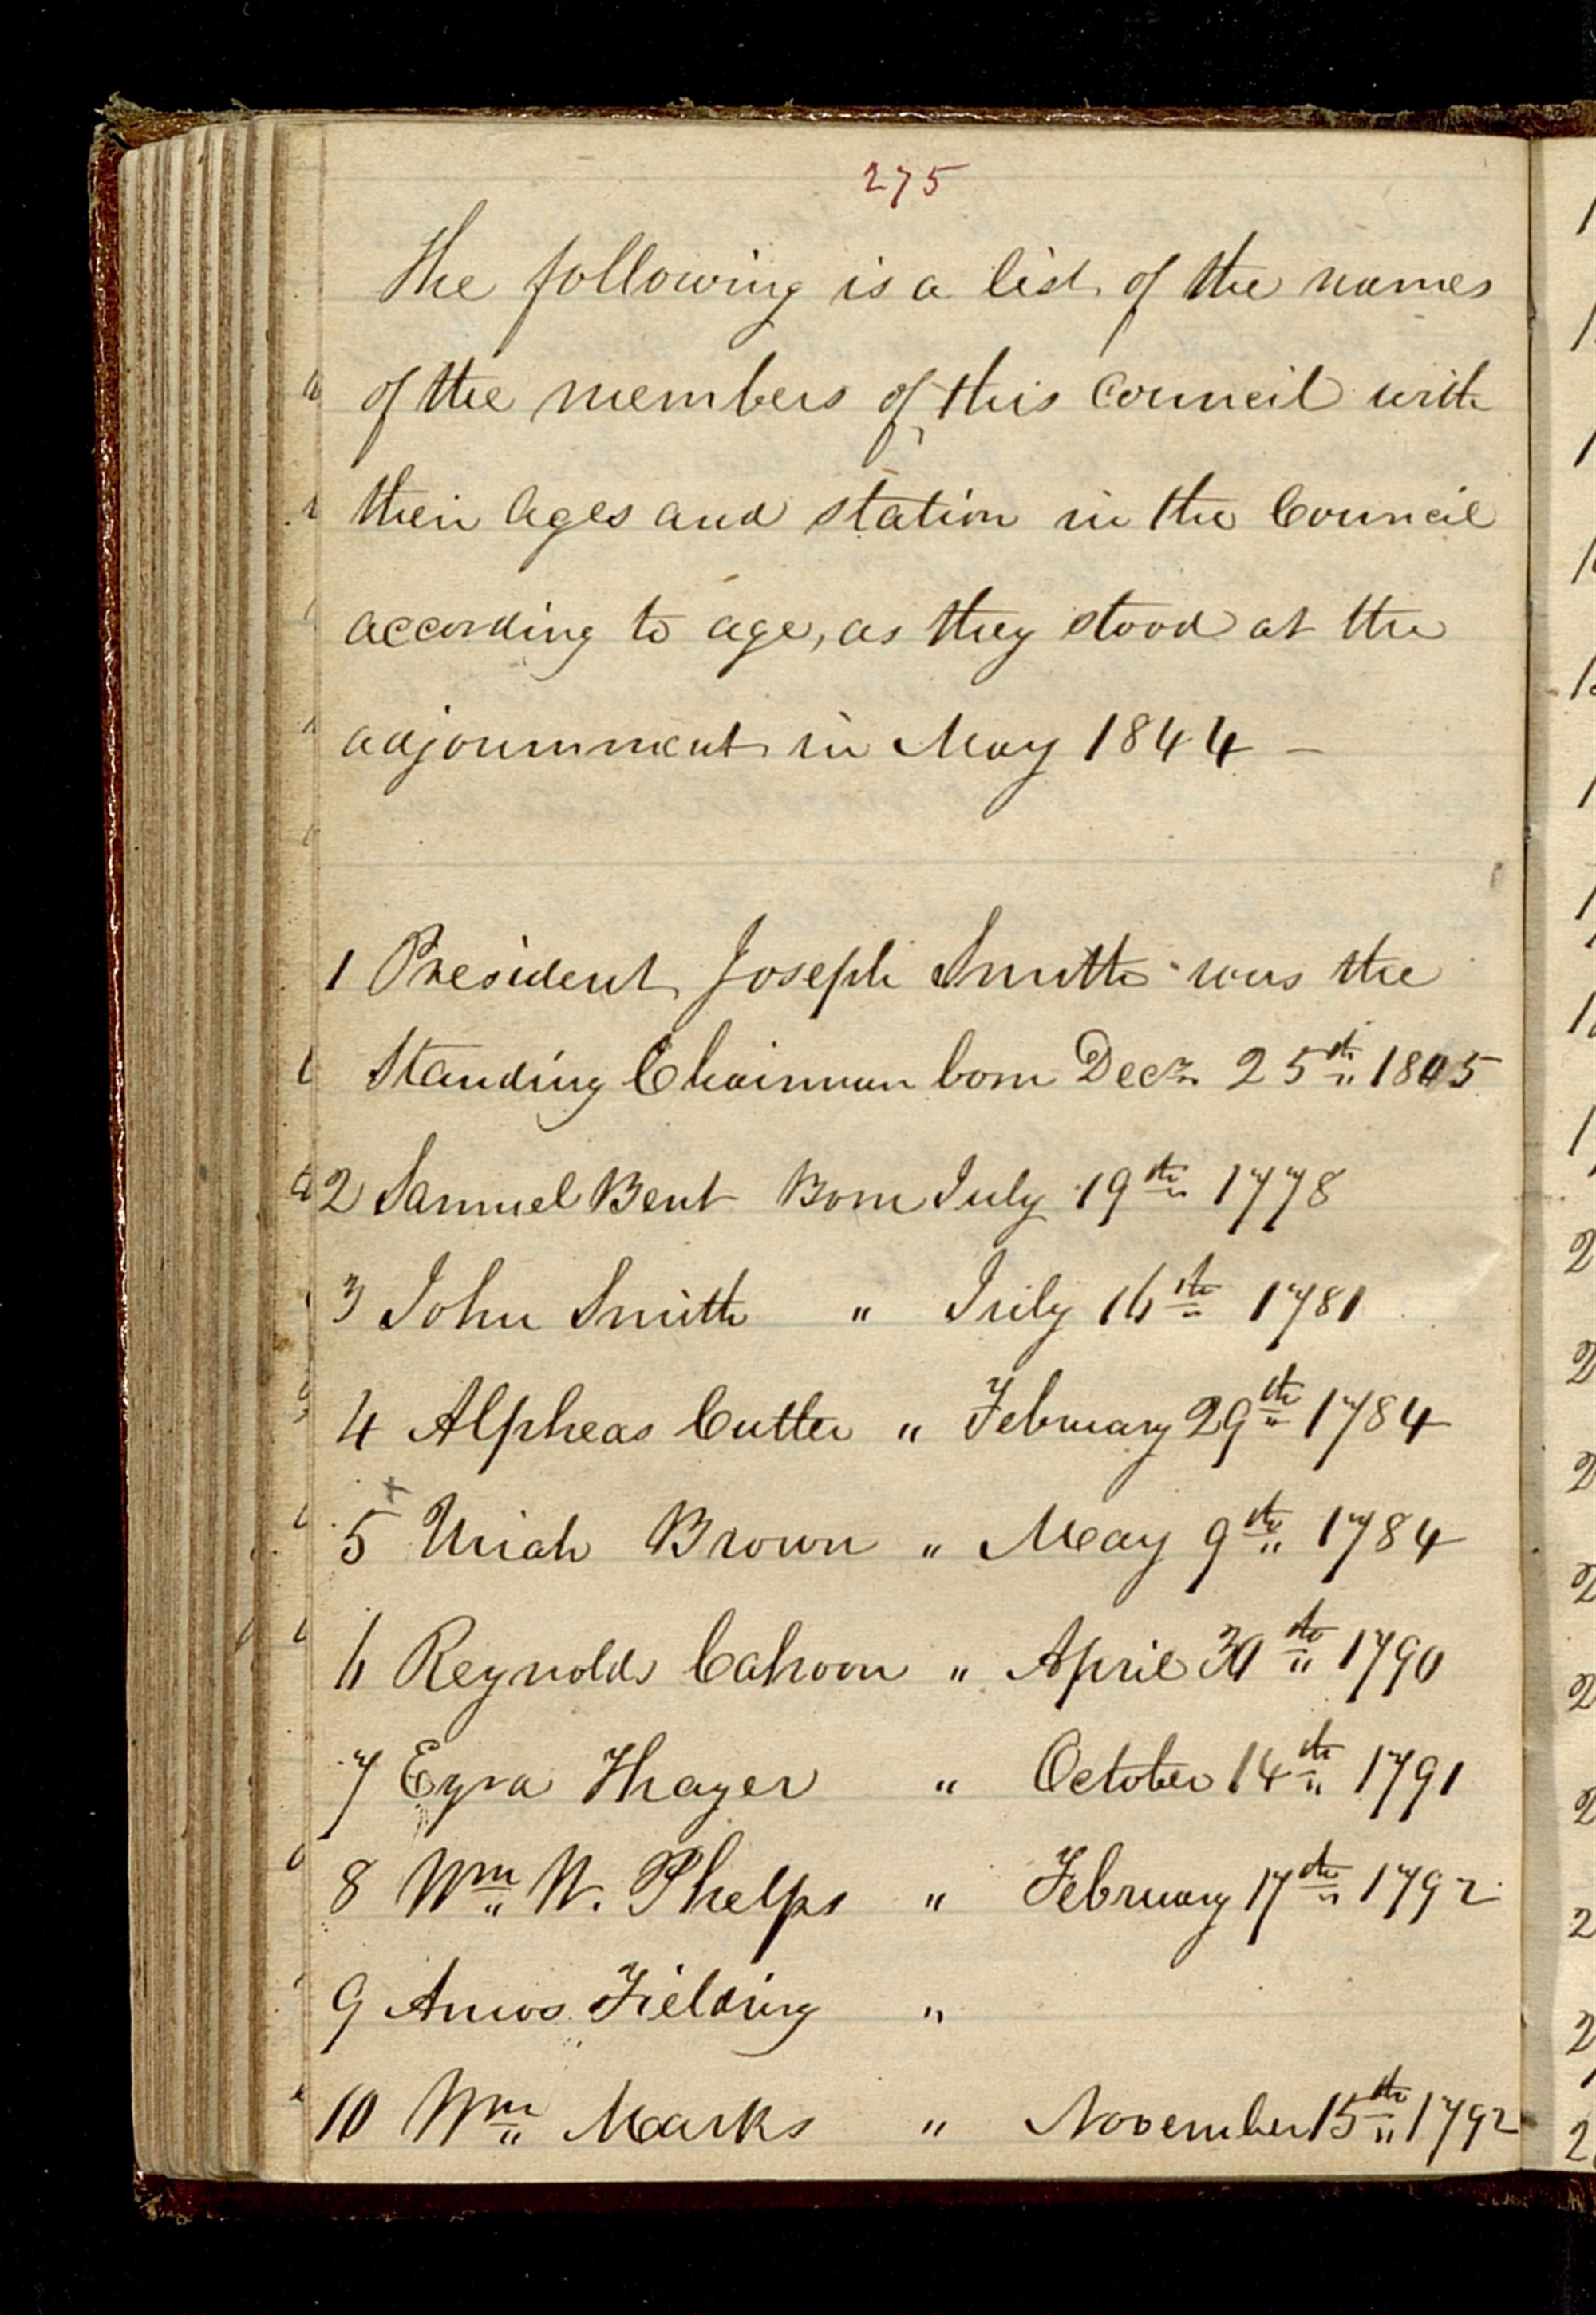 275
The following is a list of the names
of the members of this Council with
their ages and station in the Council
according to age, as they stood at the
adjournment in May 1844 –
1 President Joseph Smith was the
Standing Chairman born Decr. 25th 1805
2 Samuel Bent Born July 19th 1778
3 John Smith " July 16th 1781
4 Alpheas Cutler " February 29th 1784
5 + Uriah Brown " May 9th 1784
6 Reynolds Cahoon " April 30th 1790
7 Ezra Thayer " October 14th 1791
8 Wm. W. Phelps " February 17th 1792
9 Amos Fielding "
10 Wm. Marks " November 15th 1792